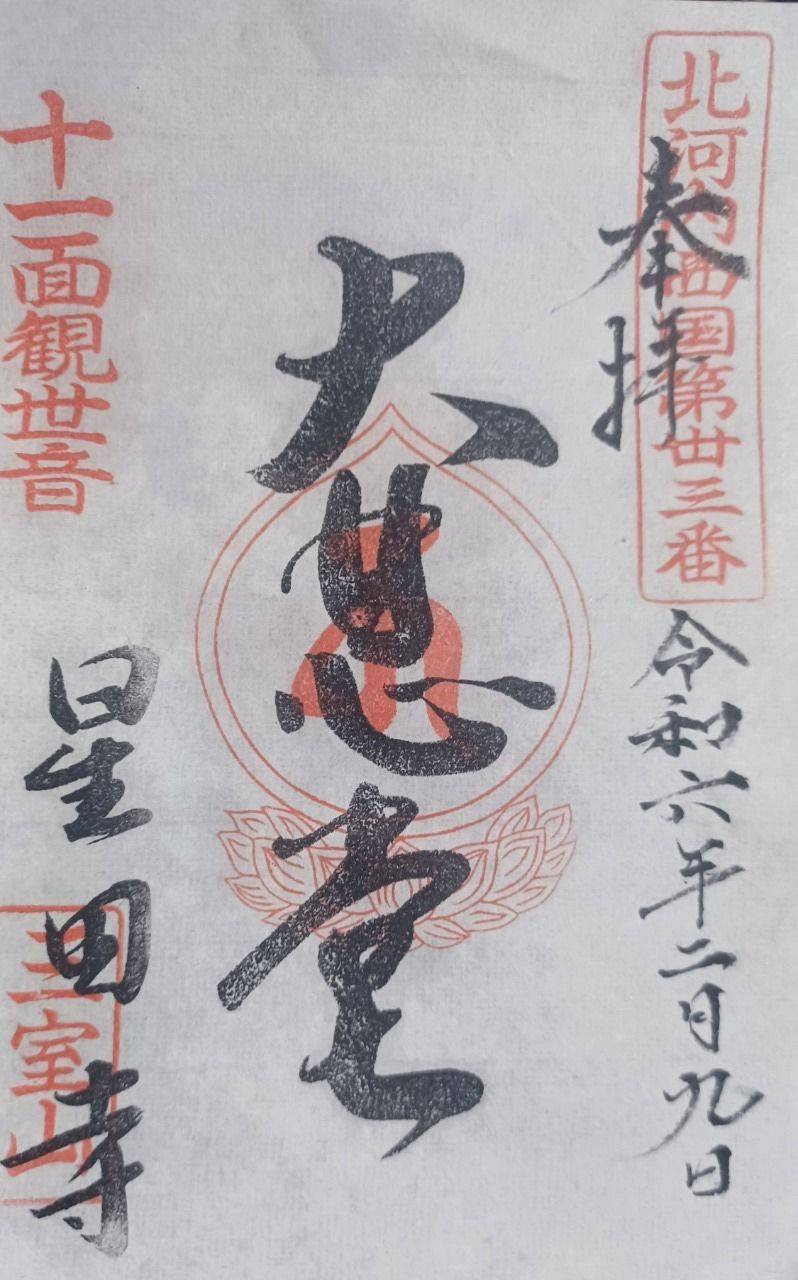 北河内西国第廿三番
奉拝
令和六年二月九日
大悲堂
十一面観世音
星田寺
三室山